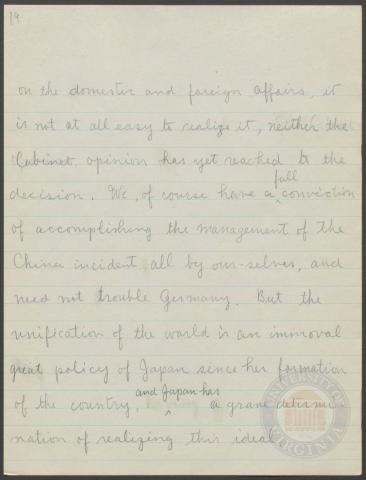 19
on the domestic and foreign affairs, it
is not at all easy to realize it, neither the
Cabinet opinion has yet reached to the
full
decision. We, of course have a conviction
of accomplishing the management of the
China incident all by our-selves, and
need not trouble Germany. But the
unification of the world is an immoval
great policy of Japan since her formation
and Japan has
of the country, a grave determi
nation of realizing this ideal.
UNIVERSITY OF VIRGINIA